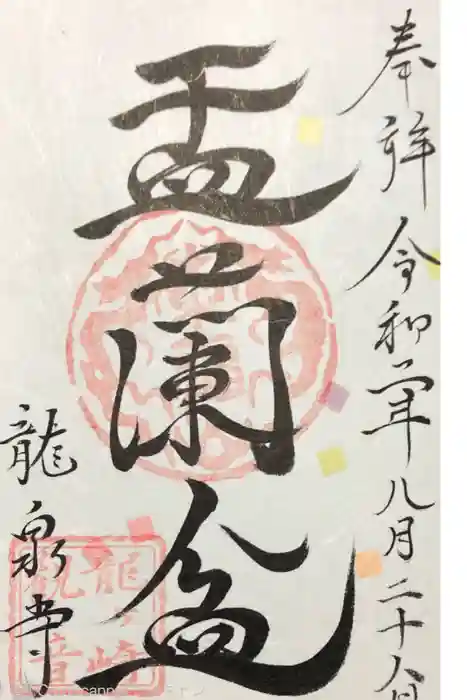 奉拝 令和二年八月二十八日
盂蘭盆
龍泉寺
龍ヶ崎
観音